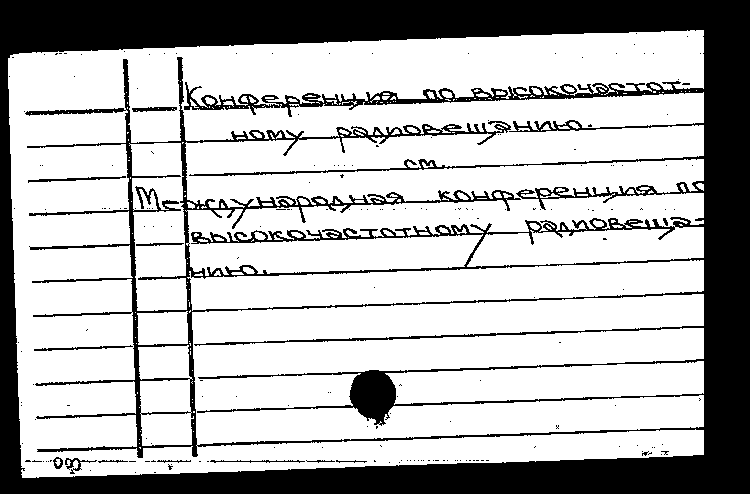 Конференция по высокочастот-
ному радиовещанию.
см.
Международная конференция по
высокочастотному радиовеща-
нию.